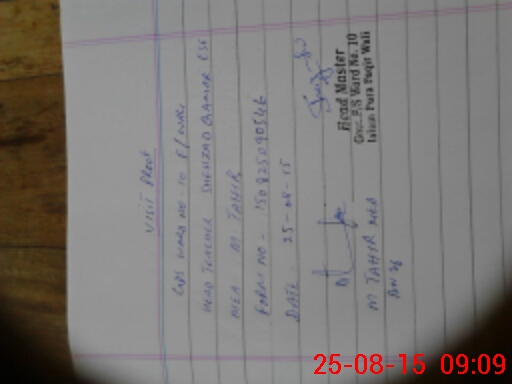 VISIT PROOF
GPS WARD NO-10 F/WALI
HEAD TEACHER SHEHZAD QAMAR ESE
MEA M TAHIR
FORM NO - 150825090546
DATE. 25-08-15
Head Master
Govt. P/S Ward No. 10
Islam Pura Faqir Wali
M TAHIR MEA
25-08-15 09:09